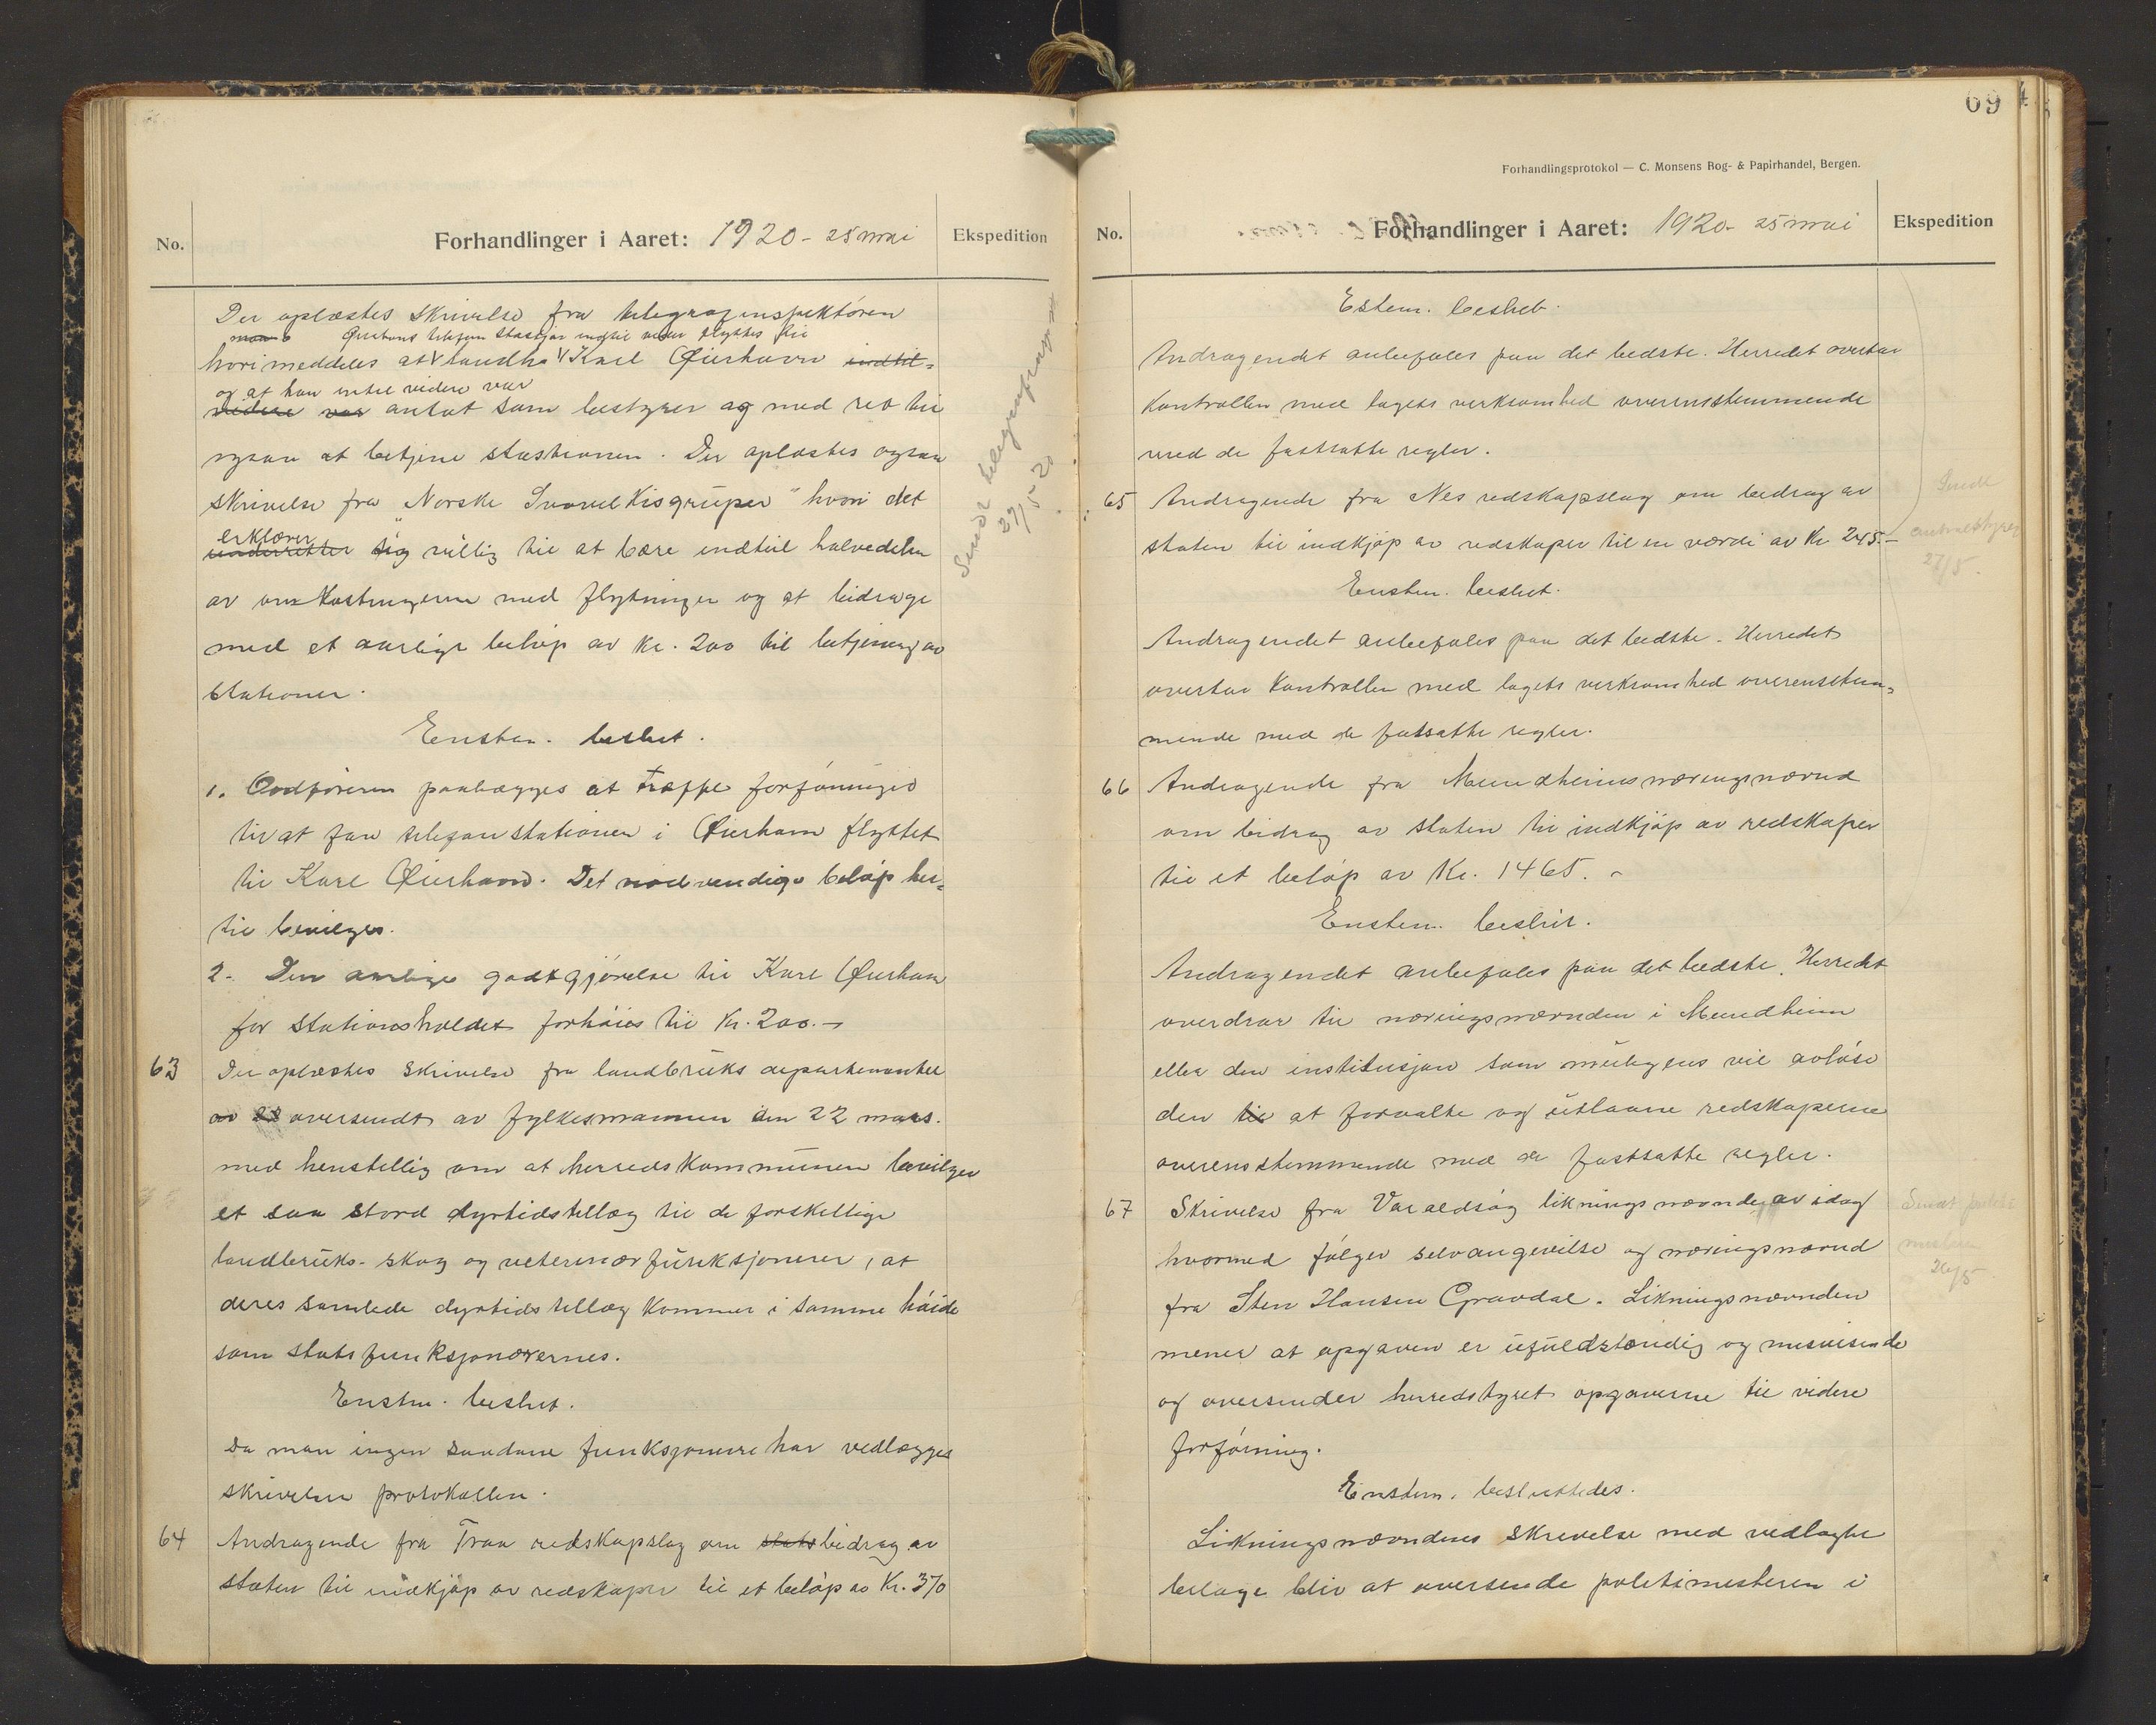 No.
Forhandlinger i Aaret: 1920 - 25 mai
Ekspedition
Der oplæstes skrivelse fra telegrafinspektøren
telefon stasjon indtil videre flyttes til
hvori meddeles at landh. Karl Øierhavn indtil-
og at han indtil videre var
videre var antat som bestyrer og med ret til
ogsaa at betjene stastionen. Der oplæstes ogsaa
skrivelse fra "Norske Svovelkisgruper" hvori det
erklærer
underretter sig villig til at bære indtil halvedelen
av omkostningerne med flytningen og at bidrage
med et aarlige beløp av kr. 200 til betjening av
stationen.
Enstem. beslut.
1. Ordføreren paalægges at træffe forføininger
til at faa telefonstationen i Øierhavn flyttet
til Karl Øierhavn. Det nødvendige beløp her-
til bevilges.
2. Den aarlige godtgjørelse til Karl Øierhavn
for stationsholdet forhøies til kr. 200.-
Sendt telegrafinsp.
27/5-20
63
Der oplæstes skrivelse fra landbruks departementet
av 22 oversendt av fylkesmannen den 22 mars.
med henstellig om at herredskommunen bevilger
et saa stord dyrtidstillæg til de forskellige
landbruks- skog og veterinærfunksjonærer, at
deres samlede dyrtidstillæg kommer i samme høide
som statsfunksjonærernes.
Enstem. beslut.
Da man ingen saadane funksjonære har vedlægges
skrivelsen protokollen.
64
Andragende fra Traa redskapslag om stats bidrag av
staten til indkjøp av redskaper til et beløp av Kr. 370
69
Forhandlingsprotokol — C. Monsens Bog- & Papirhandel, Bergen.
No.
Forhandlinger i Aaret: 1920 - 25 mai
Ekspedition
Estem. beslut.
Andragendet anbefales paa det bedste. Herredet overtar
kontrollen med lagets verksomhed overensstemmende
med de fastsatte regler.
65
Andragende fra Nes redskapslag om bedrag av
staten til indkjøp av redskaper til en værdi av Kr 245.-
Sendt
27/5.
Enstem. beslut.
Andragendet anbefales paa det bedste. Herredet
overtar kontrollen med lagets verksomhed overenstem-
mende med de fatsatte regler.
66
Andragende fra Mundheims næringsnævnd
om bidrag av staten til indkjøp av redskaper
til et beløp av Kr. 1465.-
Enstem. beslut.
Andragendet anbefales paa det bedste. Herredet
overdrar til næringsnævnden i Mundheim
eller den institusjon som muligens vil avløse
den til at forvalte og utlaane redskaperne
overensstemmende med de fastsatte regler.
67
Skrivelse fra Varaldsøy likningsnævnde av idag
hvormed følger selvangivelse og næringsnævnd
fra Sten Hansen Gravdal. Likningsnævnden
mener at opgaven er ufuldstændig og misvisende
og oversender herredstyret opgaverne til videre
forføining.
Sendt politi-
mesteren
26/5
Enstem. besluttedes.
Likningsnævndens skrivelse med vedlagte
bilage blir at oversende politimesteren i